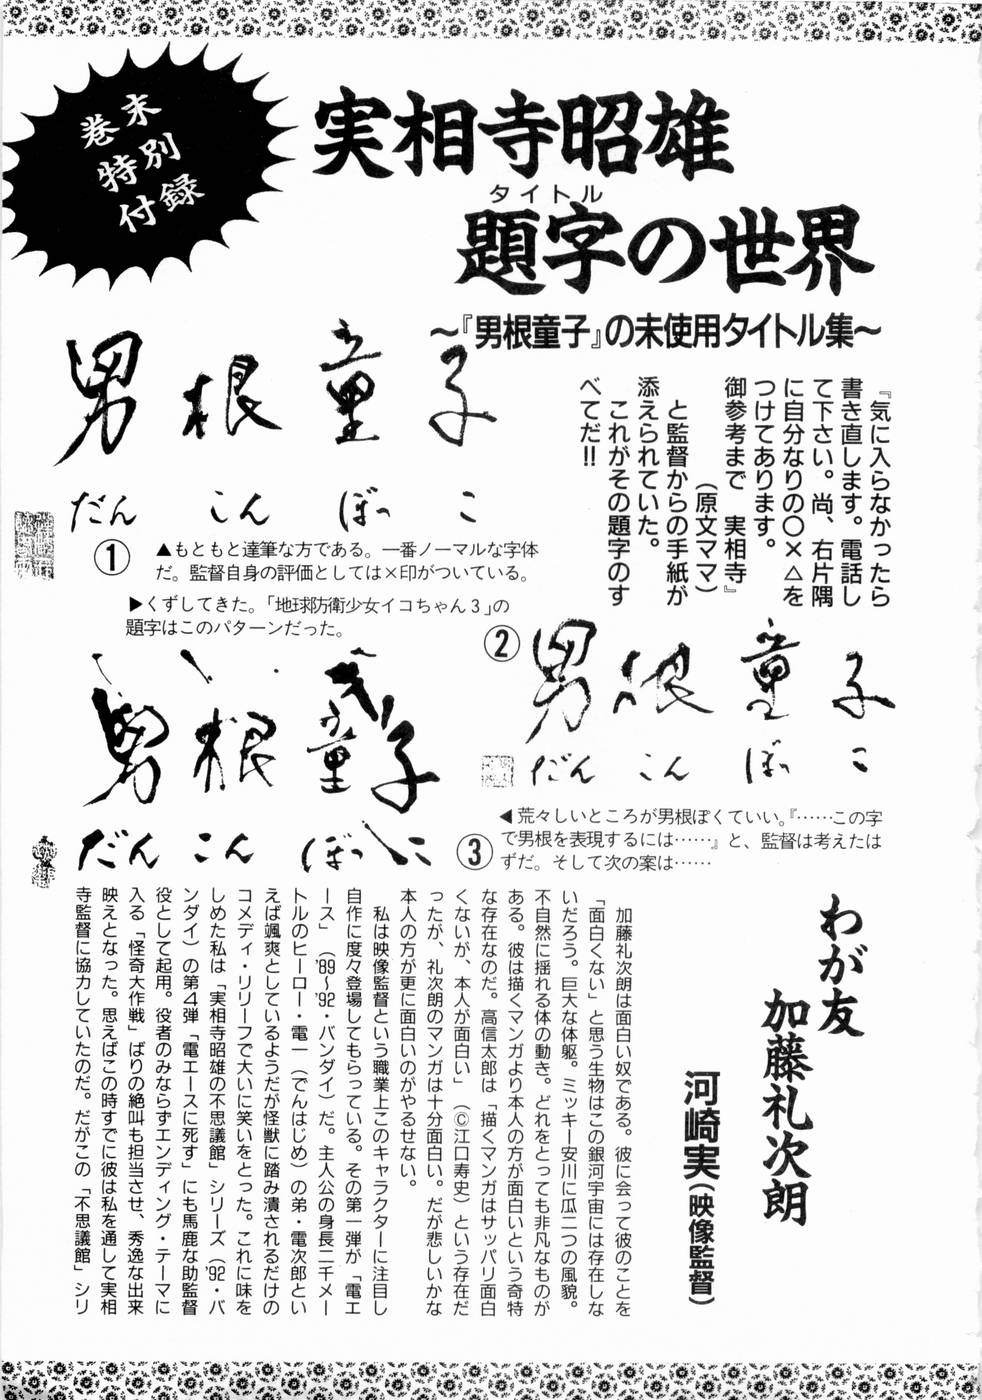 巻末
特別
付録
実相寺昭雄
タイトル
題字の世界
～『男根童子』の未使用タイトル集～
『気に入らなかったら
書き直します。電話し
て下さい。尚、右片隅
に自分なりの〇×△を
つけてあります。
御参考まで　実相寺』
（原文ママ）
と監督からの手紙が
添えられていた。
これがその題字のす
べてだ!!
男根童子
だんこんぼっこ
①
▲もともと達筆な方である。一番ノーマルな字体
だ。監督自身の評価としては×印がついている。
▶くずしてきた。「地球防衛少女イコちゃん3」の
題字はこのパターンだった。
②
男根童子
だんこんぼっこ
男根童子
だんこんぼっこ
③
◀荒々しいところが男根ぽくていい。『……この字
で男根を表現するには……』と、監督は考えたは
ずだ。そして次の案は……
わが友
加藤礼次朗
河崎実（映像監督）
加藤礼次朗は面白い奴である。彼に会って彼のことを
「面白くない」と思う生物はこの銀河宇宙には存在しな
いだろう。巨大な体躯。ミッキー安川に瓜二つの風貌。
不自然に揺れる体の動き。どれをとっても非凡なものが
ある。彼は描くマンガより本人の方が面白いという奇特
な存在なのだ。高信太郎は「描くマンガはサッパリ面白
くないが、本人が面白い」（Ⓒ江口寿史）という存在だ
ったが、礼次朗のマンガは十分面白い。だが悲しいかな
本人の方が更に面白いのがやるせない。
私は映像監督という職業上このキャラクターに注目し
自作に度々登場してもらっている。その第一弾が「電エ
ース」（'89～'92・バンダイ）だ。主人公の身長二千メー
トルのヒーロー・電一（でんはじめ）の弟・電次郎とい
えば颯爽としているようだが怪獣に踏み潰されるだけの
コメディ・リリーフで大いに笑いをとった。これに味を
しめた私は「実相寺昭雄の不思議館」シリーズ（'92・バ
ンダイ）の第4弾「電エースに死す」にも馬鹿な助監督
役として起用。役者のみならずエンディング・テーマに
入る「怪奇大作戦」ばりの絶叫も担当させ、秀逸な出来
映えとなった。思えばこの時すでに彼は私を通して実相
寺監督に協力していたのだ。だがこの「不思議館」シリ